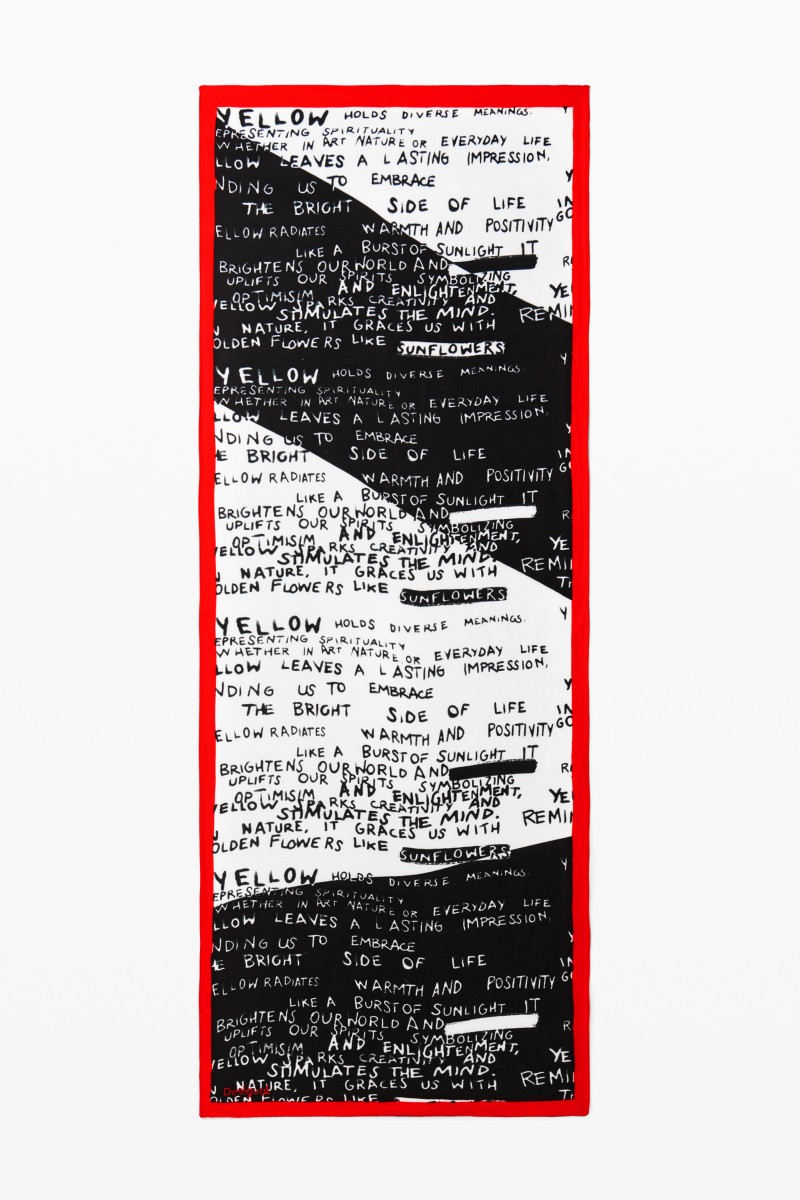 YELLOW HOLDS DIVERSE MEANINGS.
EPRESENTING SPIRITUALITY
WHETHER IN ART NATURE OR EVERYDAY LIFE
LLOW LEAVES A LASTING IMPRESSION,
NDING US TO EMBRACE Y
THE BRIGHT SIDE OF LIFE IN
ELLOW RADIATES WARMTH AND POSITIVITY GO
LIKE A BURST OF SUNLIGHT IT
BRIGHTENS OUR WORLD AND R
UPLIFTS OUR SPIRITS SYMBOLIZING
OPTIMISIM AND ENLIGHTENMENT, YE
YELLOW SPARKS CREATIVITY AND
STIMULATES THE MIND. REMI
N NATURE, IT GRACES US WITH
OLDEN FLOWERS LIKE SUNFLOWERS
Y
YELLOW HOLDS DIVERSE MEANINGS.
EPRESENTING SPIRITUALITY
WHETHER IN ART NATURE OR EVERYDAY LIFE
LLOW LEAVES A LASTING IMPRESSION,
NDING US TO EMBRACE
E BRIGHT SIDE OF LIFE IN
ELLOW RADIATES WARMTH AND POSITIVITY G
LIKE A BURST OF SUNLIGHT IT
BRIGHTENS OUR WORLD AND R
UPLIFTS OUR SPIRITS SYMBOLIZING
OPTIMISIM AND ENLIGHTENMENT, YE
YELLOW SPARKS CREATIVITY AND
STIMULATES THE MIND. REMI
N NATURE, IT GRACES US WITH
OLDEN FLOWERS LIKE SUNFLOWERS T
YELLOW HOLDS DIVERSE MEANINGS.
EPRESENTING SPIRITUALITY
WHETHER IN ART NATURE OR EVERYDAY LIFE
LLOW LEAVES A LASTING IMPRESSION,
NDING US TO EMBRACE Y
THE BRIGHT SIDE OF LIFE IN
ELLOW RADIATES WARMTH AND POSITIVITY GO
LIKE A BURST OF SUNLIGHT IT
BRIGHTENS OUR WORLD AND R
UPLIFTS OUR SPIRITS SYMBOLIZING
OPTIMISIM AND ENLIGHTENMENT, YE
YELLOW SPARKS CREATIVITY AND
STIMULATES THE MIND. REMI
N NATURE, IT GRACES US WITH
OLDEN FLOWERS LIKE SUNFLOWERS
Y
YELLOW HOLDS DIVERSE MEANINGS.
EPRESENTING SPIRITUALITY
WHETHER IN ART NATURE OR EVERYDAY LIFE
LLOW LEAVES A LASTING IMPRESSION,
NDING US TO EMBRACE
E BRIGHT SIDE OF LIFE IN
ELLOW RADIATES WARMTH AND POSITIVITY G
LIKE A BURST OF SUNLIGHT IT
BRIGHTENS OUR WORLD AND R
UPLIFTS OUR SPIRITS SYMBOLIZING
OPTIMISIM AND ENLIGHTENMENT, YE
YELLOW SPARKS CREATIVITY AND
STIMULATES THE MIND. REMI
N NATURE, IT GRACES US WITH
OLDEN FLOWERS LIKE